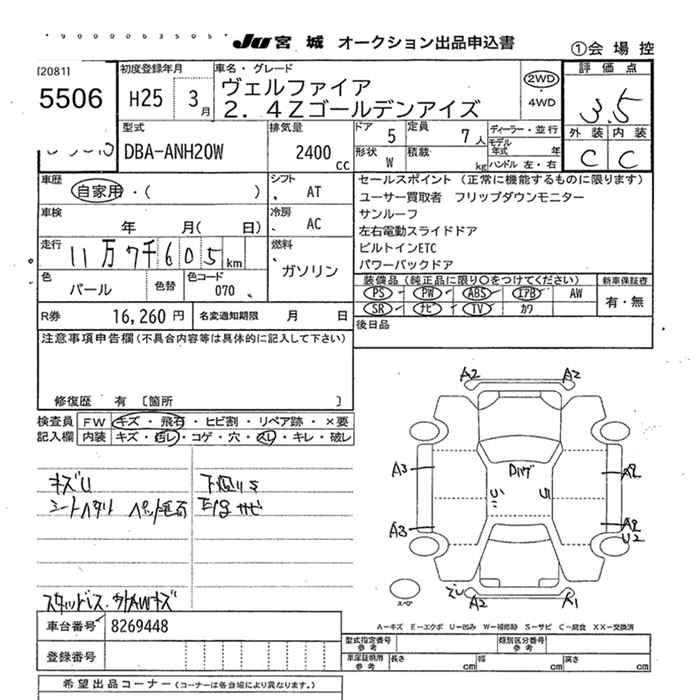 JU 宮城 オークション出品申込書
①会場控
[2081]
5506
初度登録年月
H25 3月
車名・グレード
ヴェルファイア
2.4Zゴールデンアイズ
2WD
・
4WD
評価点
3.5
外装 内装
C C
型式
DBA-ANH20W
排気量
2400 cc
ドア 5
定員 7人
形状 W
積載 kg
ディーラー・並行
モデル年式 年
ハンドル 左・右
車歴 自家用・( )
シフト AT
車検 年 月( 日)
冷房 AC
走行 11万7千605km
燃料 ガソリン
色 パール
色替
色コード 070
R券 16,260円
名変通知期限 月 日
セールスポイント (正常に機能するものに限ります)
ユーザー買取者 フリップダウンモニター
サンルーフ
左右電動スライドドア
ビルトインETC
パワーバックドア
装備品 (純正品に限り○をつけてください)
新車保証書
PS PW ABS エアB AW
SR ナビ TV カワ
有・無
後日品
注意事項申告欄(不具合内容等は具体的に記入して下さい)
修復歴 有 〔箇所 〕
検査員記入欄
FW キズ・飛石・ヒビ割・リペア跡・×要
内装 キズ・汚レ・コゲ・穴・スレ・キレ・破レ
キズU
下廻りS
シートヘタリ
サビ
A2 A2
A3
A3
U2
A2
スペア
A-キズ E-エクボ U-凹み W-補修跡 S-サビ C-腐食 XX-交換済
車台番号 8269448
登録番号
型式指定番号 参考
類別区分番号 参考
車庫証明用 参考
長さ cm 幅 cm 高さ cm
希望出品コーナー (コーナーは各会場により異なります。)